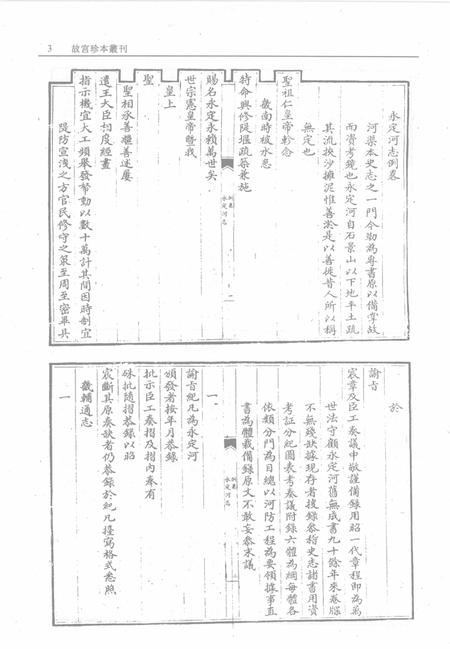 3 故宮珍本叢刊
永定河志例畧
河渠本史志之一門今勒為專書原以備掌故
而資考鏡也永定河自石景山以下地平土疏
其流挾沙擁泥惟善淤是以善徙昔人所以稱
無定也
聖祖仁皇帝軫念
畿南時被水患
特命興修隄堰疏築兼施
賜名永定永賴萬世矣
世宗憲皇帝暨我
皇上
聖
聖相承善繼善述屢
遣王大臣相度經畫
指示機宜大工頻舉發帑動以數十萬計其間因時制宜
隄防宣洩之方官民修守之策至周至密畢具
例畧
永定河志
二
於
諭旨
宸章及臣工奏議中敬謹備錄用昭一代章程即為萬
世法守顧永定河舊無成書九十餘年來卷牒
不無殘缺據現存者援錄參稽史志諸書用資
考証分紀圖表考奏議附錄六體為綱每體各
依類分門為目總以河防工程為要領據事直
書為體裁備錄原文不敢妄參末議
例畧
永定河志
一
諭旨紀凡為永定河
頒發者按年月恭錄
批示臣工奏摺及摺內奉有
硃批隨摺恭錄以昭
宸斷其原奏缺者仍恭錄於紀凡擡寫格式悉照
畿輔通志
一